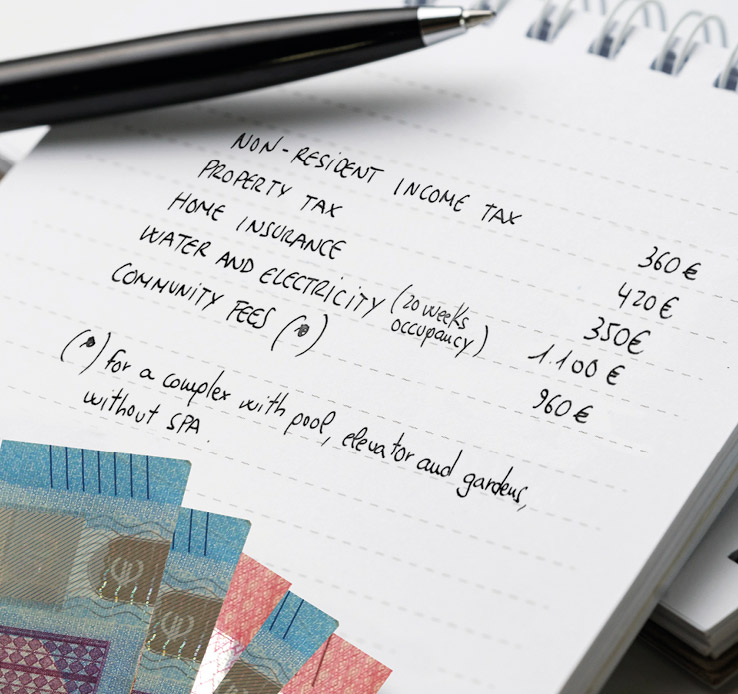 NON-RESIDENT INCOME TAX 360€
PROPERTY TAX 420€
HOME INSURANCE 350€
WATER AND ELECTRICITY (20 weeks occupancy) 1.100€
COMMUNITY FEES (*) 960€
(*) for a complex with pool, elevator and gardens,
without SPA.